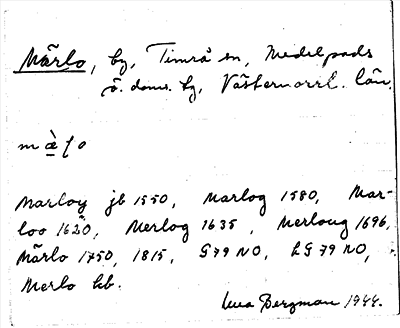 Märlo, by, Timrå sn, Medelpads
ö. doms. tg, Västernorrl. län.
m à l o
Marloy jb 1550, Marlog 1580, Mar-
loo 1620, Merlog 1635, Merloug 1696,
Märlo 1750, 1815, G 79 NO, LG 79 NO,
Merlo kb.
Bergman 1944.